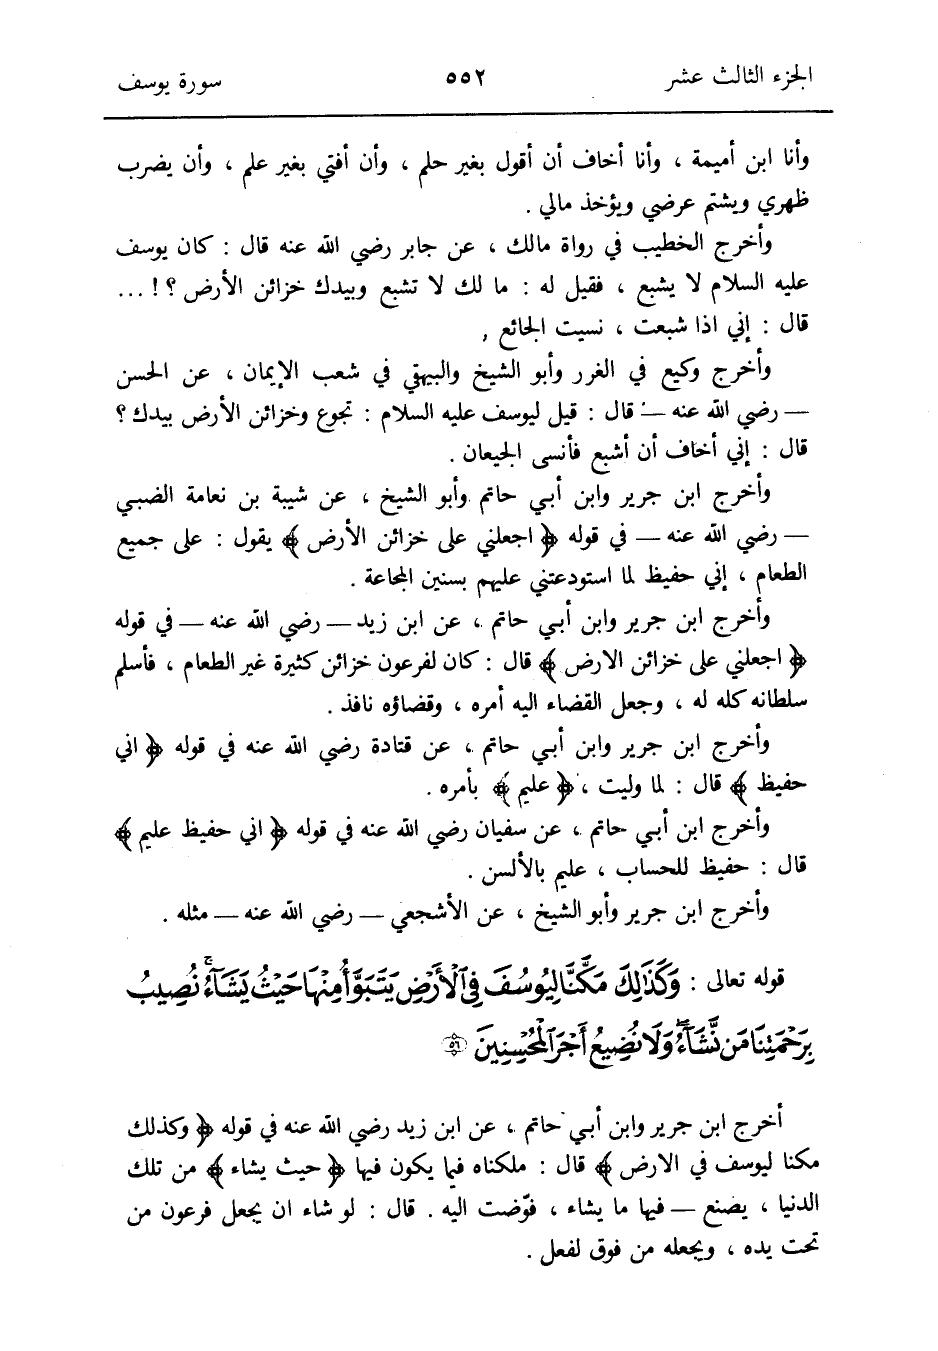 الجزء الثالث عشر ٥٥٢ سورة يوسف
وأنا ابن أميمة ، وأنا أخاف أن أقول بغير حلم ، وأن أفتي بغير علم ، وأن يضرب
ظهري ويشتم عرضي ويؤخذ مالي .
وأخرج الخطيب في رواة مالك ، عن جابر رضي الله عنه قال : كان يوسف
عليه السلام لا يشبع ، فقيل له : ما لك لا تشبع وبيدك خزائن الأرض ؟ ! ...
قال : إني اذا شبعت ، نسيت الجائع ,
وأخرج وكيع في الغرر وأبو الشيخ والبيهقي في شعب الإيمان ، عن الحسن
— رضي الله عنه — قال : قيل ليوسف عليه السلام : تجوع وخزائن الأرض بيدك ؟
قال : إني أخاف أن أشبع فأنسى الجيعان .
وأخرج ابن جرير وابن أبي حاتم وأبو الشيخ ، عن شيبة بن نعامة الضبي
— رضي الله عنه — في قوله ﴿ اجعلني على خزائن الأرض ﴾ يقول : على جميع
الطعام ، إني حفيظ لما استودعتني عليهم بسنين المجاعة .
وأخرج ابن جرير وابن أبي حاتم ، عن ابن زيد — رضي الله عنه — في قوله
﴿ اجعلني على خزائن الارض ﴾ قال : كان لفرعون خزائن كثيرة غير الطعام ، فأسلم
سلطانه كله له ، وجعل القضاء اليه أمره ، وقضاؤه نافذ .
وأخرج ابن جرير وابن أبي حاتم ، عن قتادة رضي الله عنه في قوله ﴿ اني
حفيظ ﴾ قال : لما وليت ، ﴿ عليم ﴾ بأمره .
وأخرج ابن أبي حاتم ، عن سفيان رضي الله عنه في قوله ﴿ اني حفيظ عليم ﴾
قال : حفيظ للحساب ، عليم بالألسن .
وأخرج ابن جرير وأبو الشيخ ، عن الأشجعي — رضي الله عنه — مثله .
قوله تعالى : وَكَذَٰلِكَ مَكَّنَّا لِيُوسُفَ فِي ٱلْأَرْضِ يَتَبَوَّأُ مِنْهَا حَيْثُ يَشَآءُ ۚ نُصِيبُ
بِرَحْمَتِنَا مَن نَّشَآءُ ۖ وَلَا نُضِيعُ أَجْرَ ٱلْمُحْسِنِينَ ۝٥٦
أخرج ابن جرير وابن أبي حاتم ، عن ابن زيد رضي الله عنه في قوله ﴿ وكذلك
مكنا ليوسف في الارض ﴾ قال : ملكناه فيما يكون فيها ﴿ حيث يشاء ﴾ من تلك
الدنيا ، يصنع — فيها ما يشاء ، فوّضت اليه . قال : لو شاء ان يجعل فرعون من
تحت يده ، ويجعله من فوق لفعل .